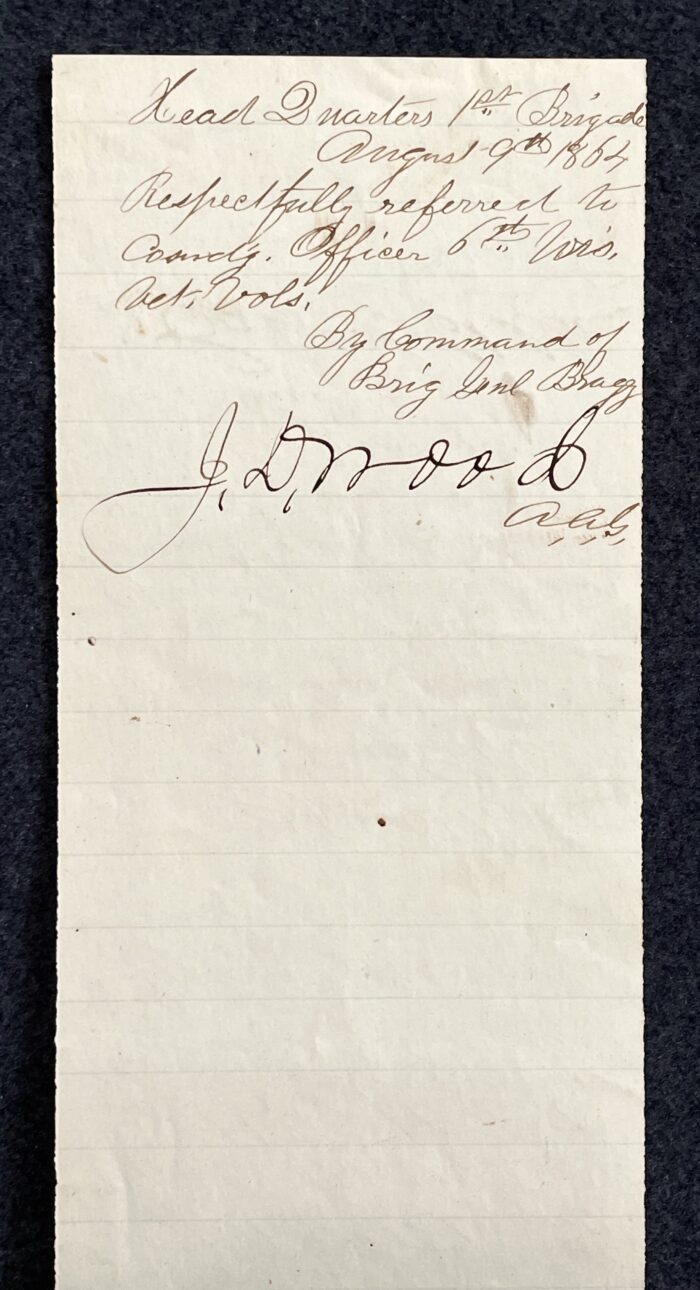 Head Quarters 1st Brigade
August 9th 1864
Respectfully referred to
Comdg. Officer 6th Wis.
Vet. Vols.
By Command of
Brig Genl Bragg
J. D. Wood
A.A.G.